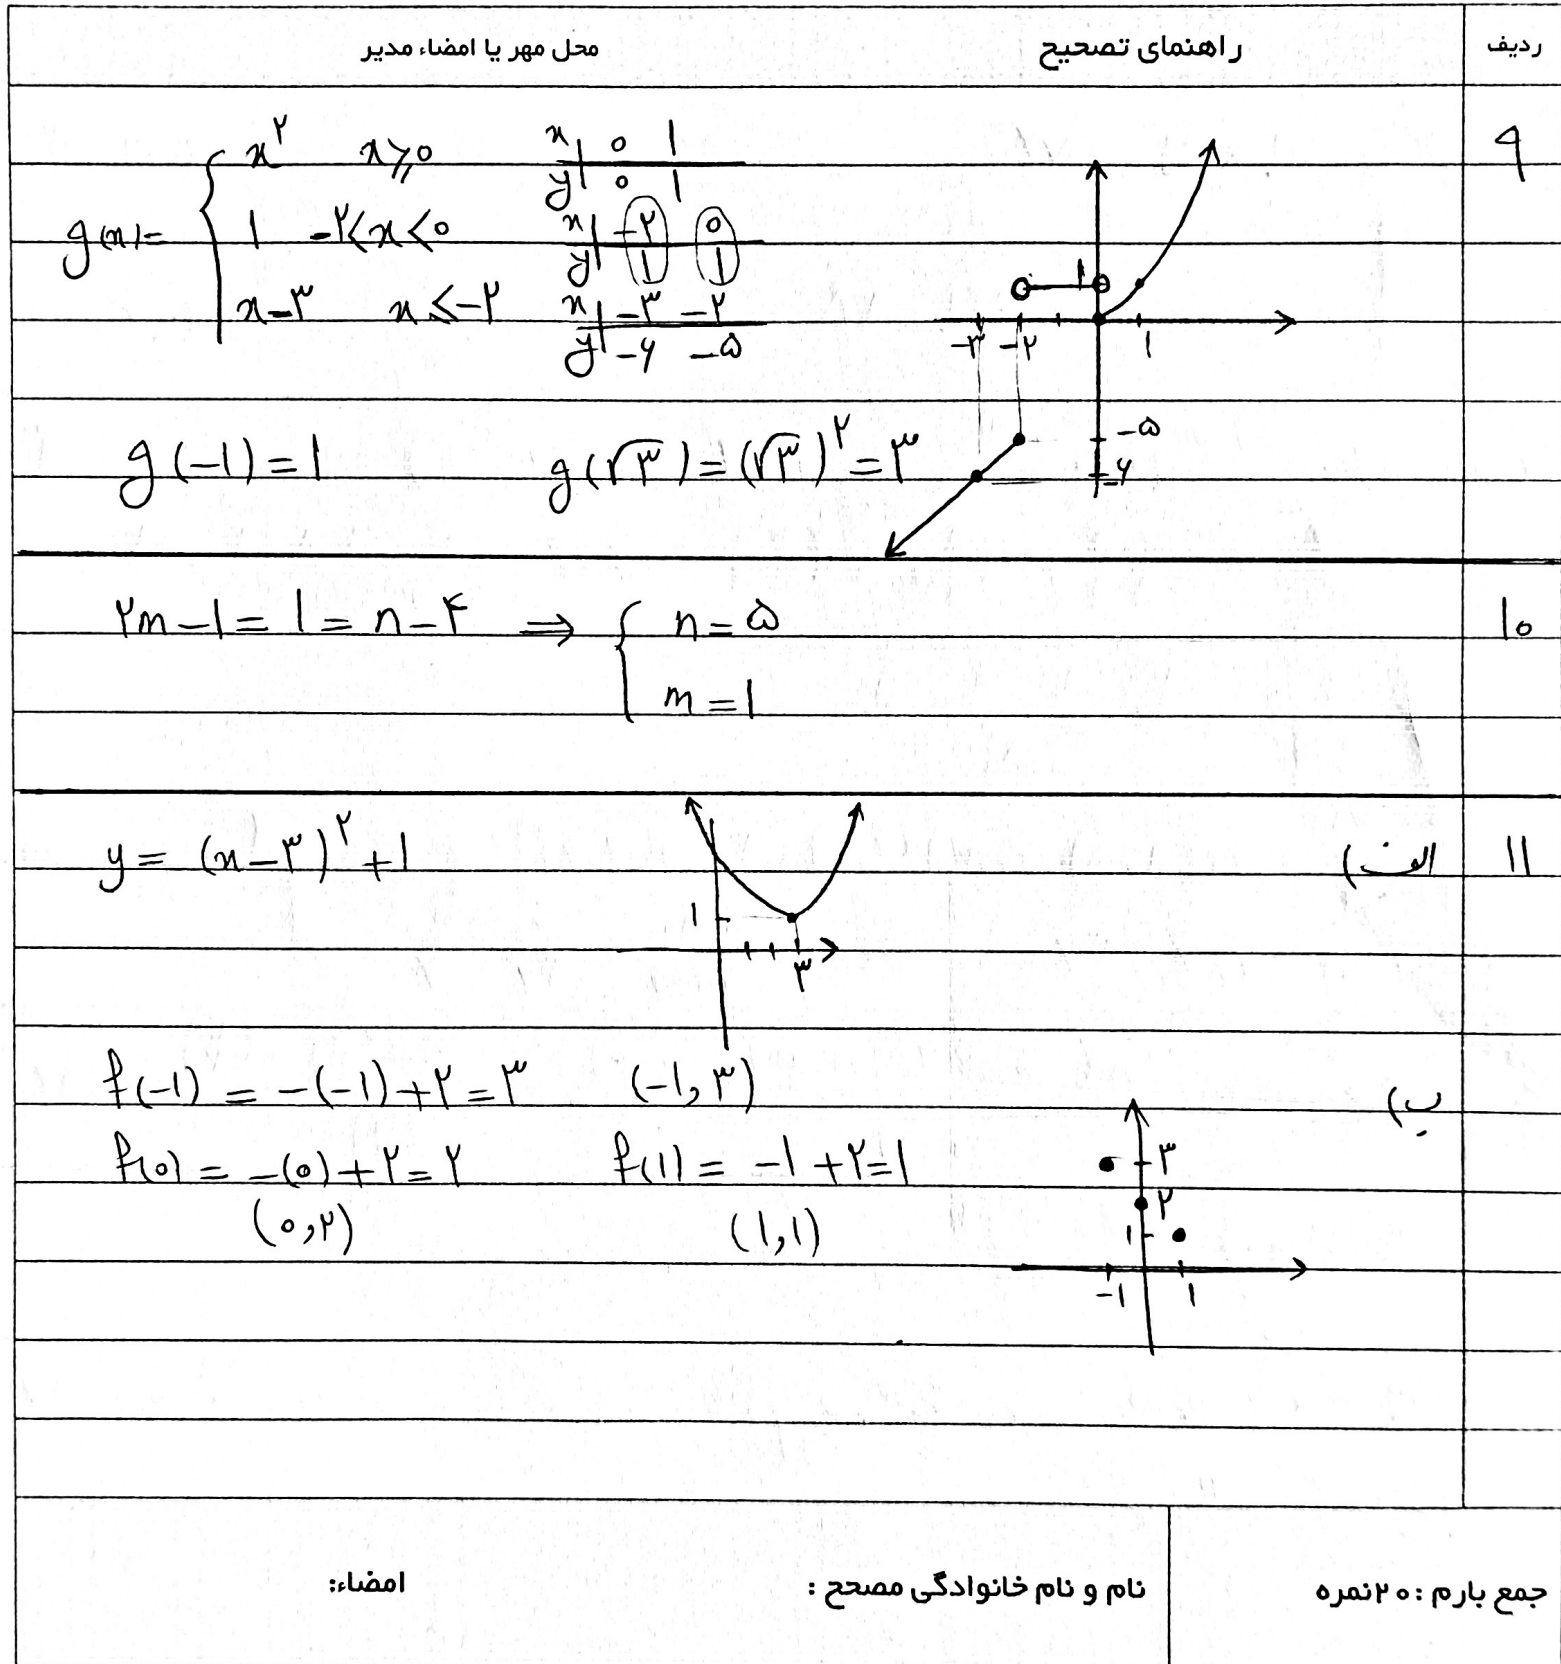 ردیف راهنمای تصحیح محل مهر یا امضاء مدیر
۹
g(x)= { x^۲ x⩾۰ x | ۰ ۱
y | ۰ ۱
۱ -۲<x<۰ x | -۲ ۰
y | ۱ ۱
x-۳ x⩽-۲ x | -۳ -۲
y | -۶ -۵
۱
-۳ -۲ ۱
-۵
-۶
g(-۱)=۱ g(√۳)=(√۳)^۲=۳
۱۰
۲m-۱=۱=n-۴ ⇒ { n=۵
m=۱
۱۱ الف)
y= (x-۳)^۲+۱
۱
۳
ب)
f(-۱) = -(-۱)+۲=۳ (-۱,۳)
f(۰) = -(۰)+۲=۲ f(۱) = -۱+۲=۱
(۰,۲) (۱,۱)
۳
۲
۱
-۱ ۱
جمع بارم : ۲۰نمره نام و نام خانوادگی مصحح : امضاء: